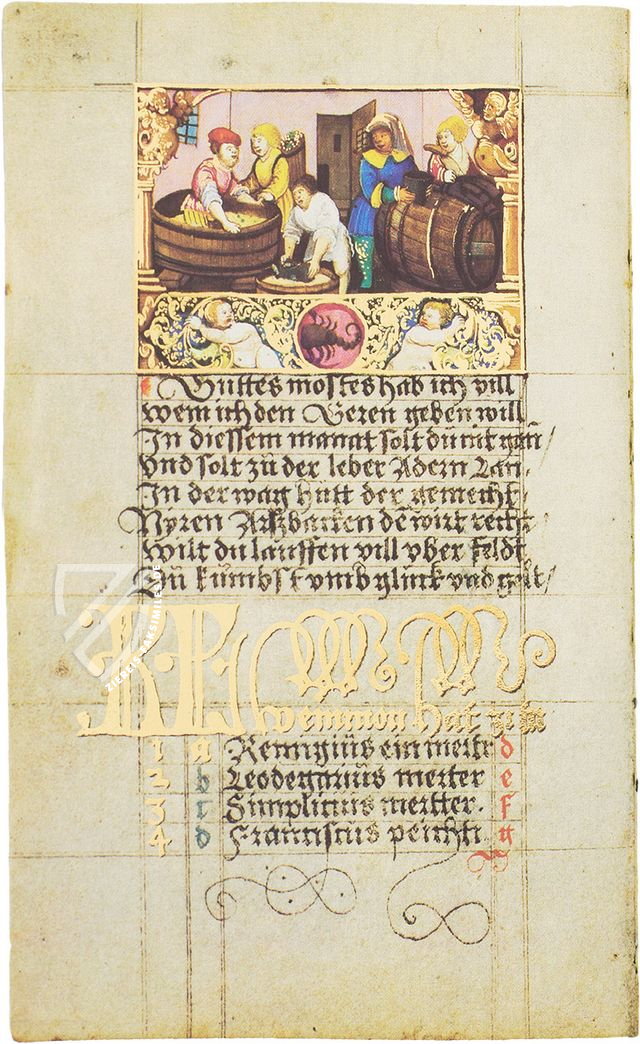 Guttes mostes hab ich vill
wem ich den Geren geben will
In diessem manat solt du nit
Vnd solt zů der leber Adern Lan
In der wag hütt der gemecht
Nyren Arszbacken de wirt recht
Wilt du lauffen vill vber feldt
Dů kümbst vmb glück vnd gelt
wemmon hat
1 a Remigiüs ein d
2 b Leodegariüs e
3 c Simplicius f
4 d Franciscüs g
ZIEREIS FAKSIMILE